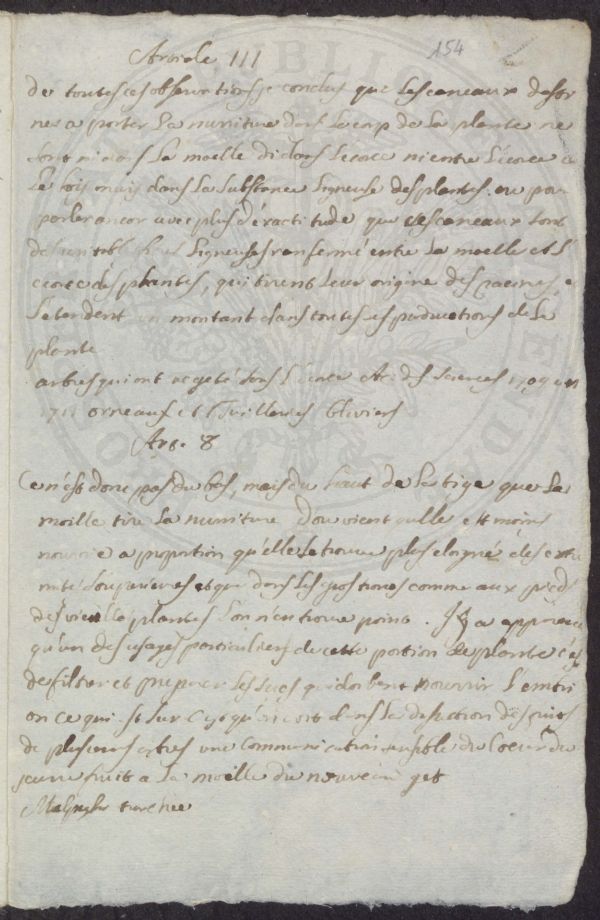 154
Article III
de toutes ces observations je conclus que les caneaux desti
nes a porter la nuriture dans le corp de la plante ne
sont ni dans la moelle ni dans l'ecorce ni entre l'ecorce e
le bois mais dans la substance ligneuse des plantes. ou pour
parler ancor avec plus d'exactitude que les caneaux sont
des ligneuses renfermé entre la moelle et l'
ecorce des plantes, qui tirent leur origine des racines, e
s'etendent en montant dans toutes les productions de la
plante
arbres qui ont vegeté sans l'ecorce Ac. des sciences 1709 en
1711 ormeaux et Tuilleries
Art. 8
Ce n'est donc pas du bas, mais du haut de la tige que la
moille tire la nuriture d'ou vient qu'elle est moins
nourie a proportion qu'elle se trouve plus eloigné des extre
mité souperieures et que dans les grosses tiges comme aux pieds
des vieille plantes l'on n'en trouve point. Il y a apparence
qu'un des usages particuliers de cette portion de plante c'es
de filtrer et preparer les sucs qui doibent nourrir l'embri
on ce qui est sur c'est qu'on voit dans la disection des fruits
de plusieurs arbres une communication sensible du coeur du
jeune fruit a la moelle du nouveau get
Malpighi